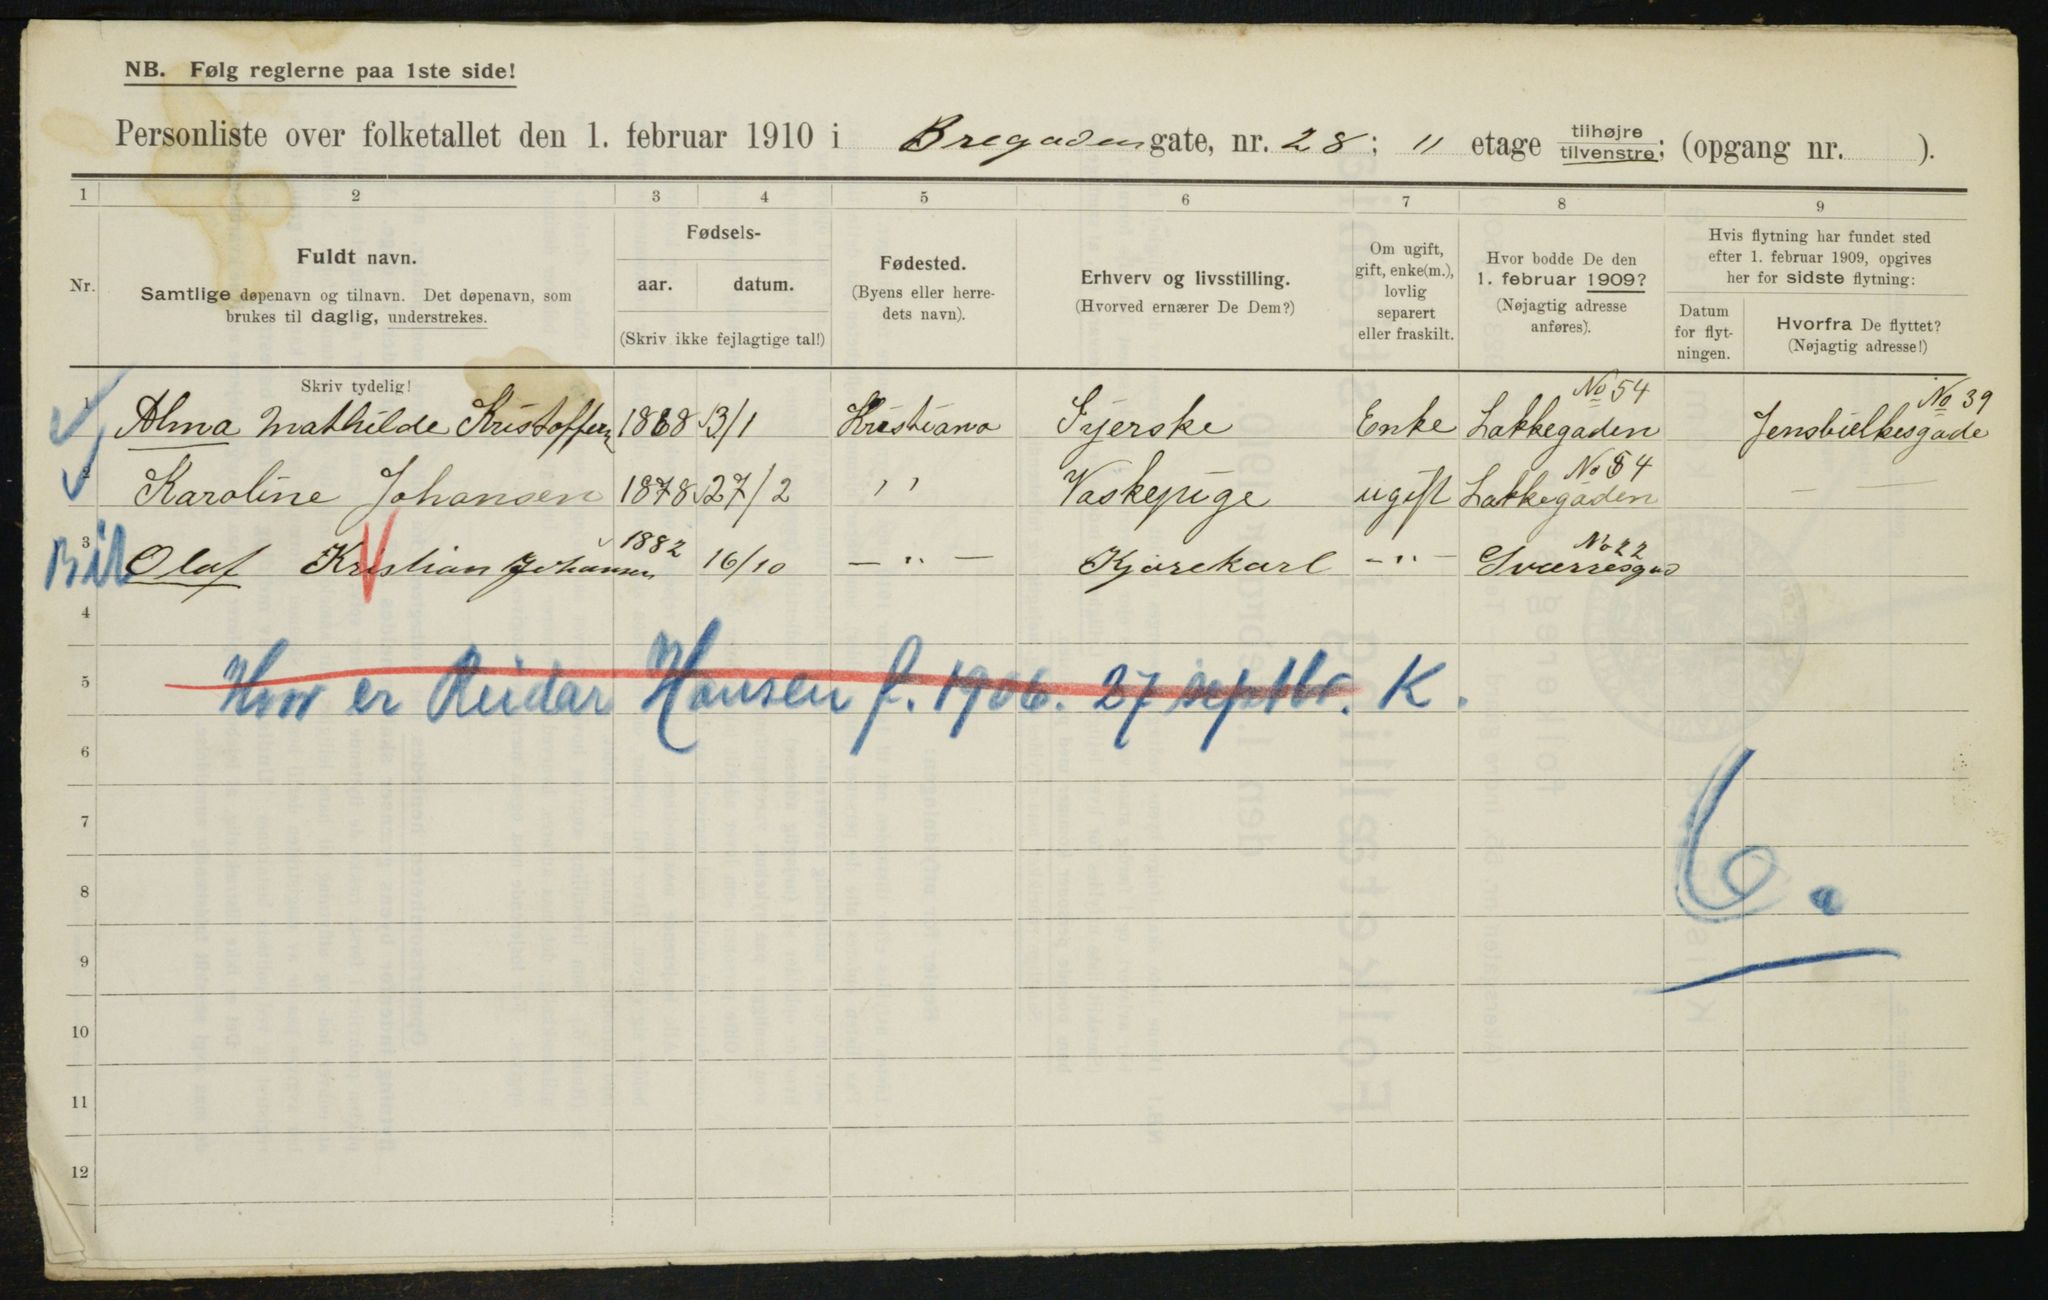 NB. Følg reglerne paa 1ste side!
Personliste over folketallet den 1. februar 1910 i Bregaden gate, nr. 28; 11 etage tilhøjre tilvenstre; (opgang nr. ).
1 2 3 4 5 6 7 8 9
Nr. Fuldt navn. Samtlige døpenavn og tilnavn. Det døpenavn, som brukes til daglig, understrekes.
Fødsels- aar. datum. (Skriv ikke fejlagtige tal!)
Fødested. (Byens eller herredets navn).
Erhverv og livsstilling. (Hvorved ernærer De Dem?)
Om ugift, gift, enke(m.), lovlig separert eller fraskilt.
Hvor bodde De den 1. februar 1909? (Nøjagtig adresse anføres).
Hvis flytning har fundet sted efter 1. februar 1909, opgives her for sidste flytning:
Datum for flytningen. Hvorfra De flyttet? (Nøjagtig adresse!)
Skriv tydelig!
1 Alma Mathilde Kristoffersen 1868 13/1 Kristiana Syerske Enke Lakkegaden No 54 Jensbielkesgade No 39
2 Karoline Johansen 1878 27/2 " Vaskepige ugift Lakkegaden No 54 — —
3 Olaf Kristian Johansen 1882 16/10 — " — Kjørekarl — " — Sværresgad No 22
4
5 Hvor er Reidar Hansen f. 1906. 27 septbr. K.
6
7
8
9
10
11
12
6.